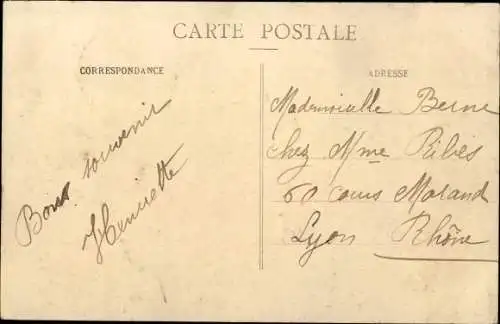 CARTE POSTALE
CORRESPONDANCE
Bons souvenir
Henriette
ADRESSE
Mademoiselle Berne
chez Mme Ribes
60 cours Morand
Lyon Rhône